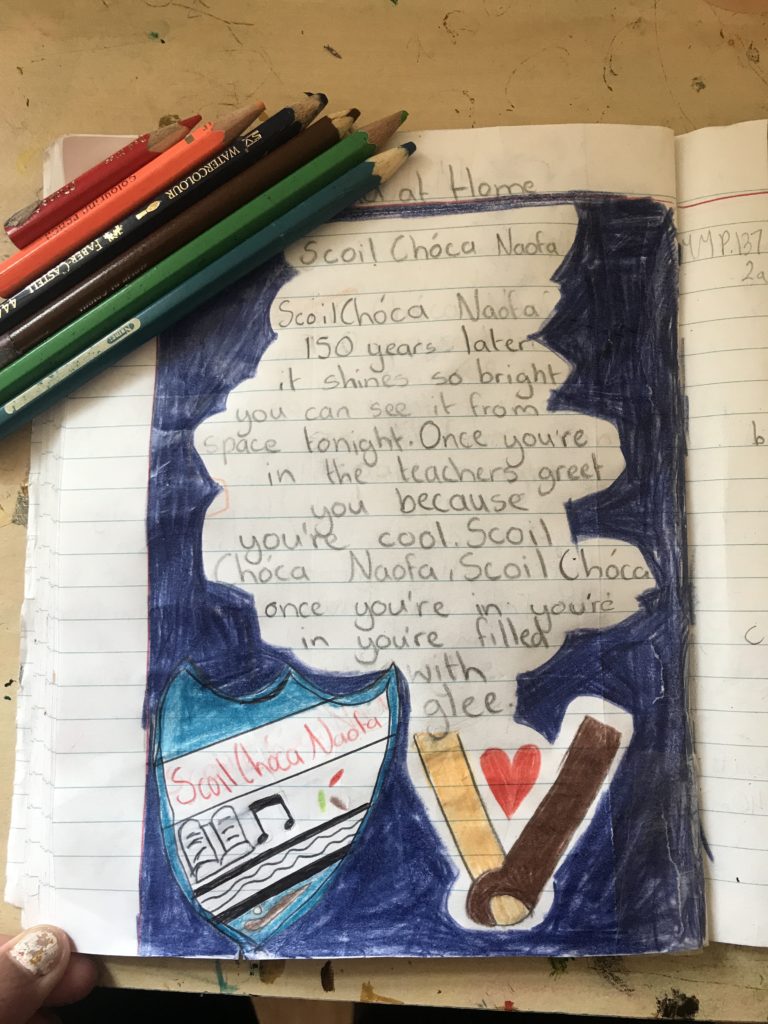 at Home
Scoil Chóca Naofa
Scoil Chóca Naofa
150 years later
it shines so bright
you can see it from
space tonight. Once you're
in the teachers greet
you because
you're cool. Scoil
Chóca Naofa, Scoil Chóca
once you're in you're
in you're filled
with
glee.
Scoil Chóca Naofa
WATERCOLOUR
FABER-CASTELL
MMP.137
2a
b
c